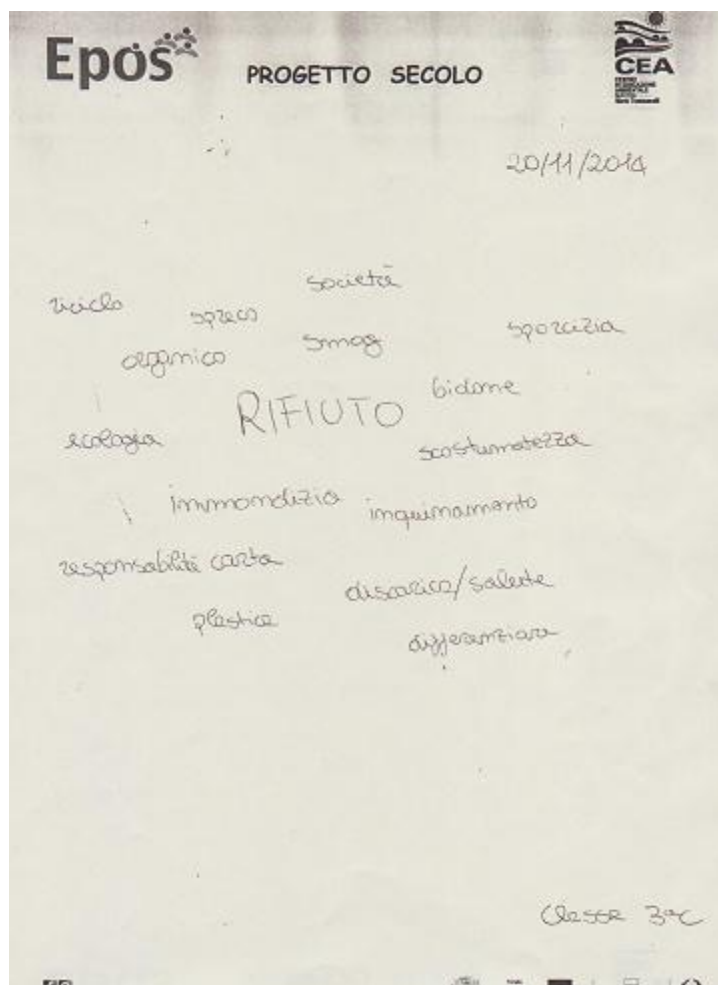 Epos
PROGETTO SECOLO
CEA
20/11/2014
società
riciclo
spreco
smog
sporcizia
organico
bidone
RIFIUTO
ecologia
scostumatezza
immondizia
inquinamento
responsabilità carta
discarica/salute
plastica
differenziare
Classe 3ªC